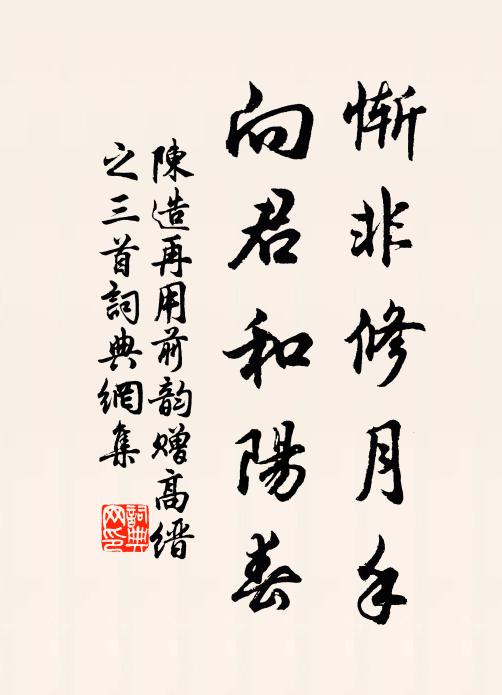 慚非修月手
向君和陽春
陳造再用前韵贈高缙
之三首詞典網集
詞典網印